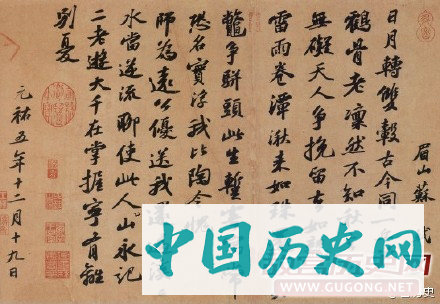 眉山蘇軾
日月轉雙轂古今同一
鶴骨老凜然不知秋
無礙天人爭挽留去如
雷雨卷潭湫來如珠
鼈爭駢頭此生暫
恐名實浮我比陶令愧
師為遠公優送我
水當逆流聊使此人山永記
二老遊大千在掌握寧有離
別憂
元祐五年十二月十九日
中国历史网
WWW.GUGONG.NET